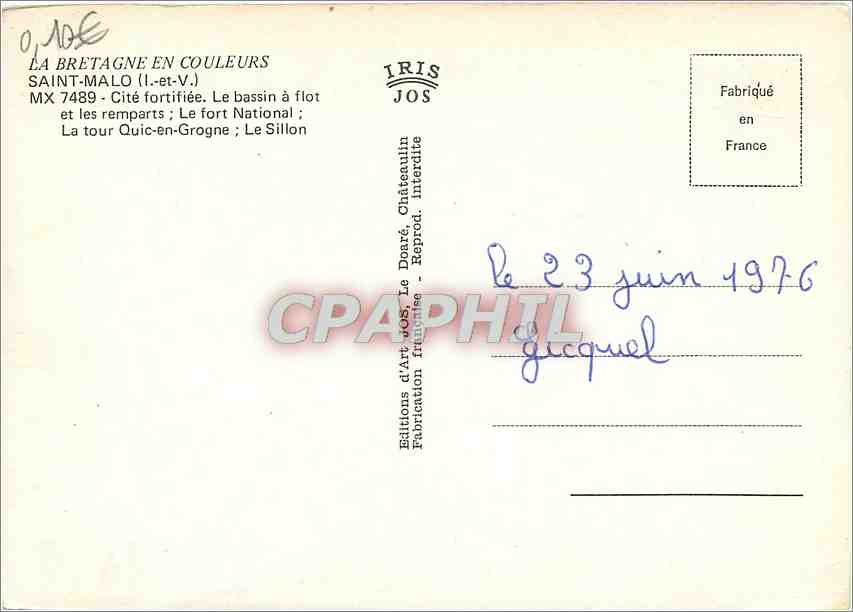 0,10€
LA BRETAGNE EN COULEURS
SAINT-MALO (I.-et-V.)
MX 7489 - Cité fortifiée. Le bassin à flot
et les remparts ; Le fort National ;
La tour Quic-en-Grogne ; Le Sillon
IRIS
JOS
Editions d'Art JOS, Le Doaré, Châteaulin
Fabrication française - Reprod. interdite
Fabriqué
en
France
le 23 juin 1976
Gicquel
CPAPHIL